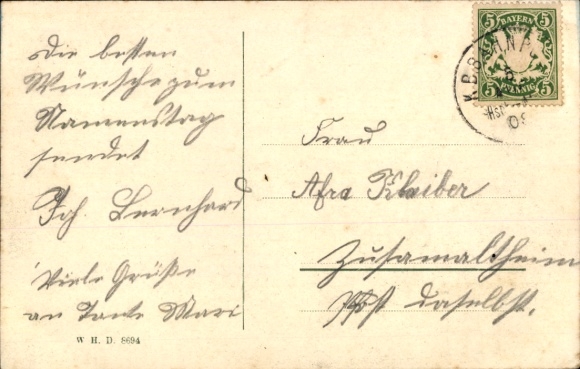 Die besten
Wünsche zum
Namenstag
sendet
Joh. Bernhard
Viele Grüße
an Tante Mari
W H. D. 8694
5 BAYERN 5
5 PFENNIG 5
K.B.BAHNPOST
Frau
Afra Klaiber
Zusamaltheim
Post daselbst.